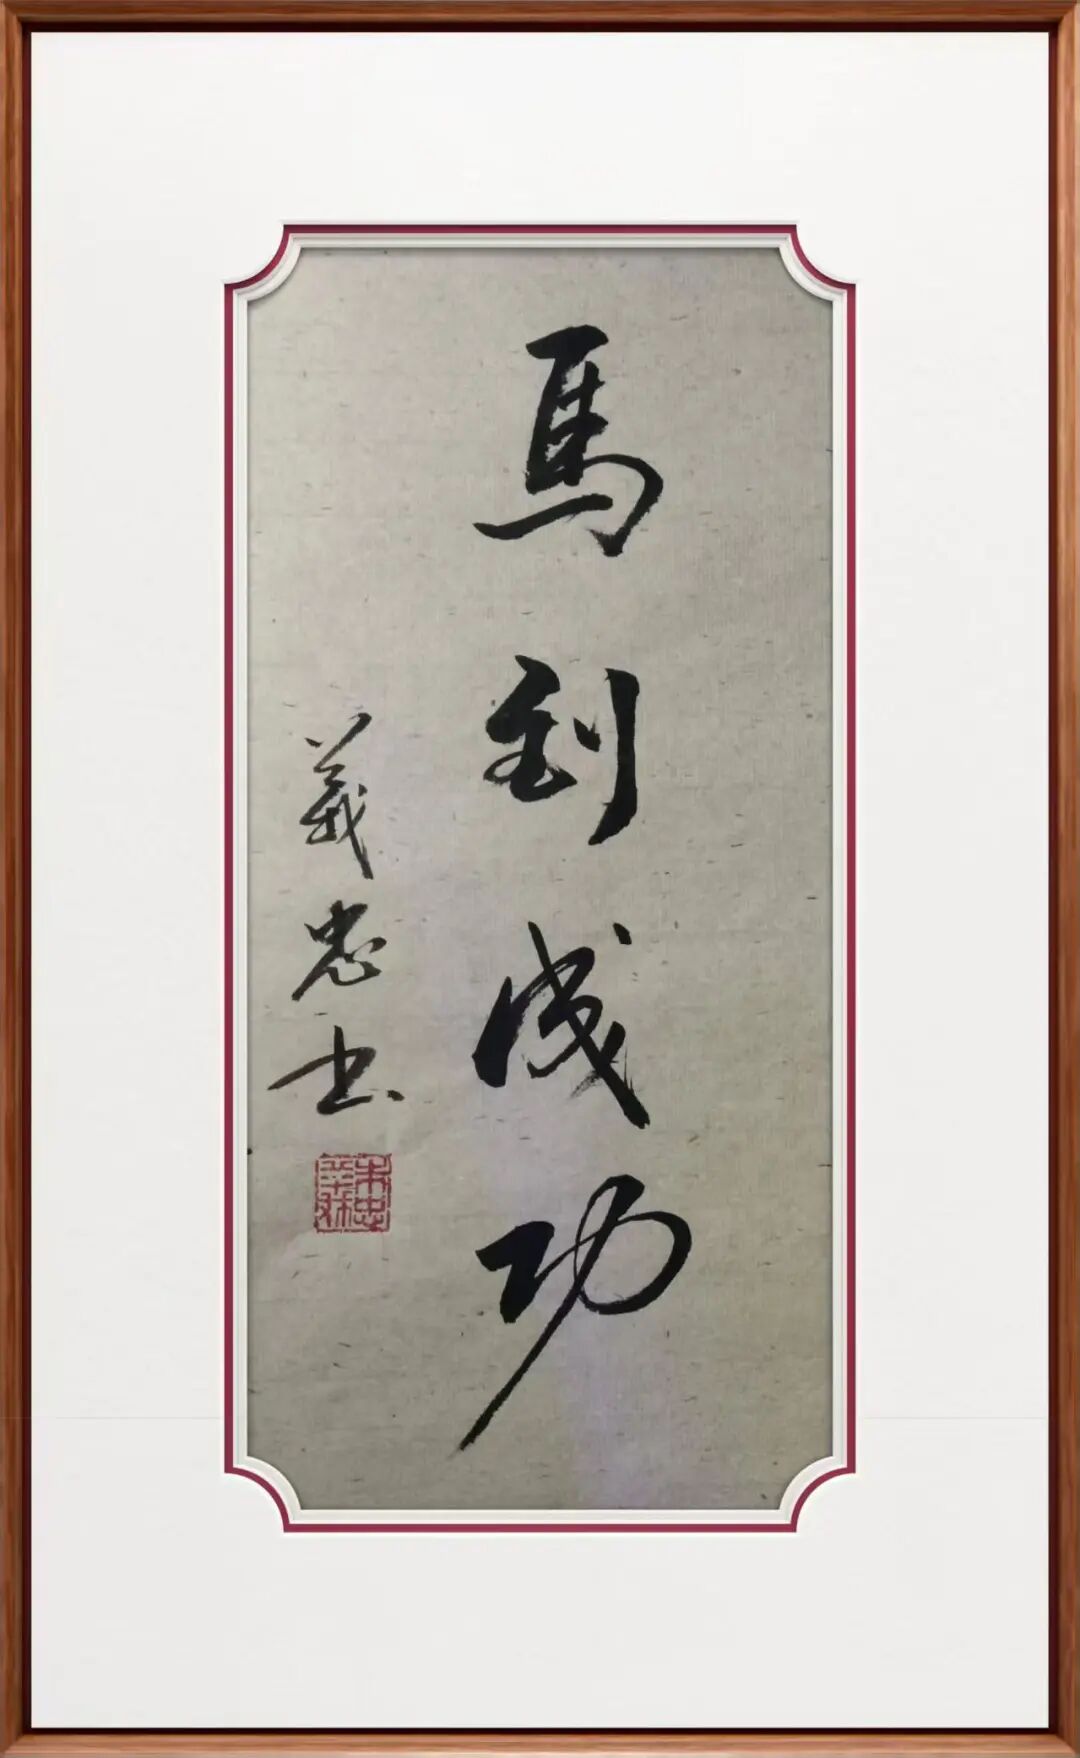 馬到成功
義忠书